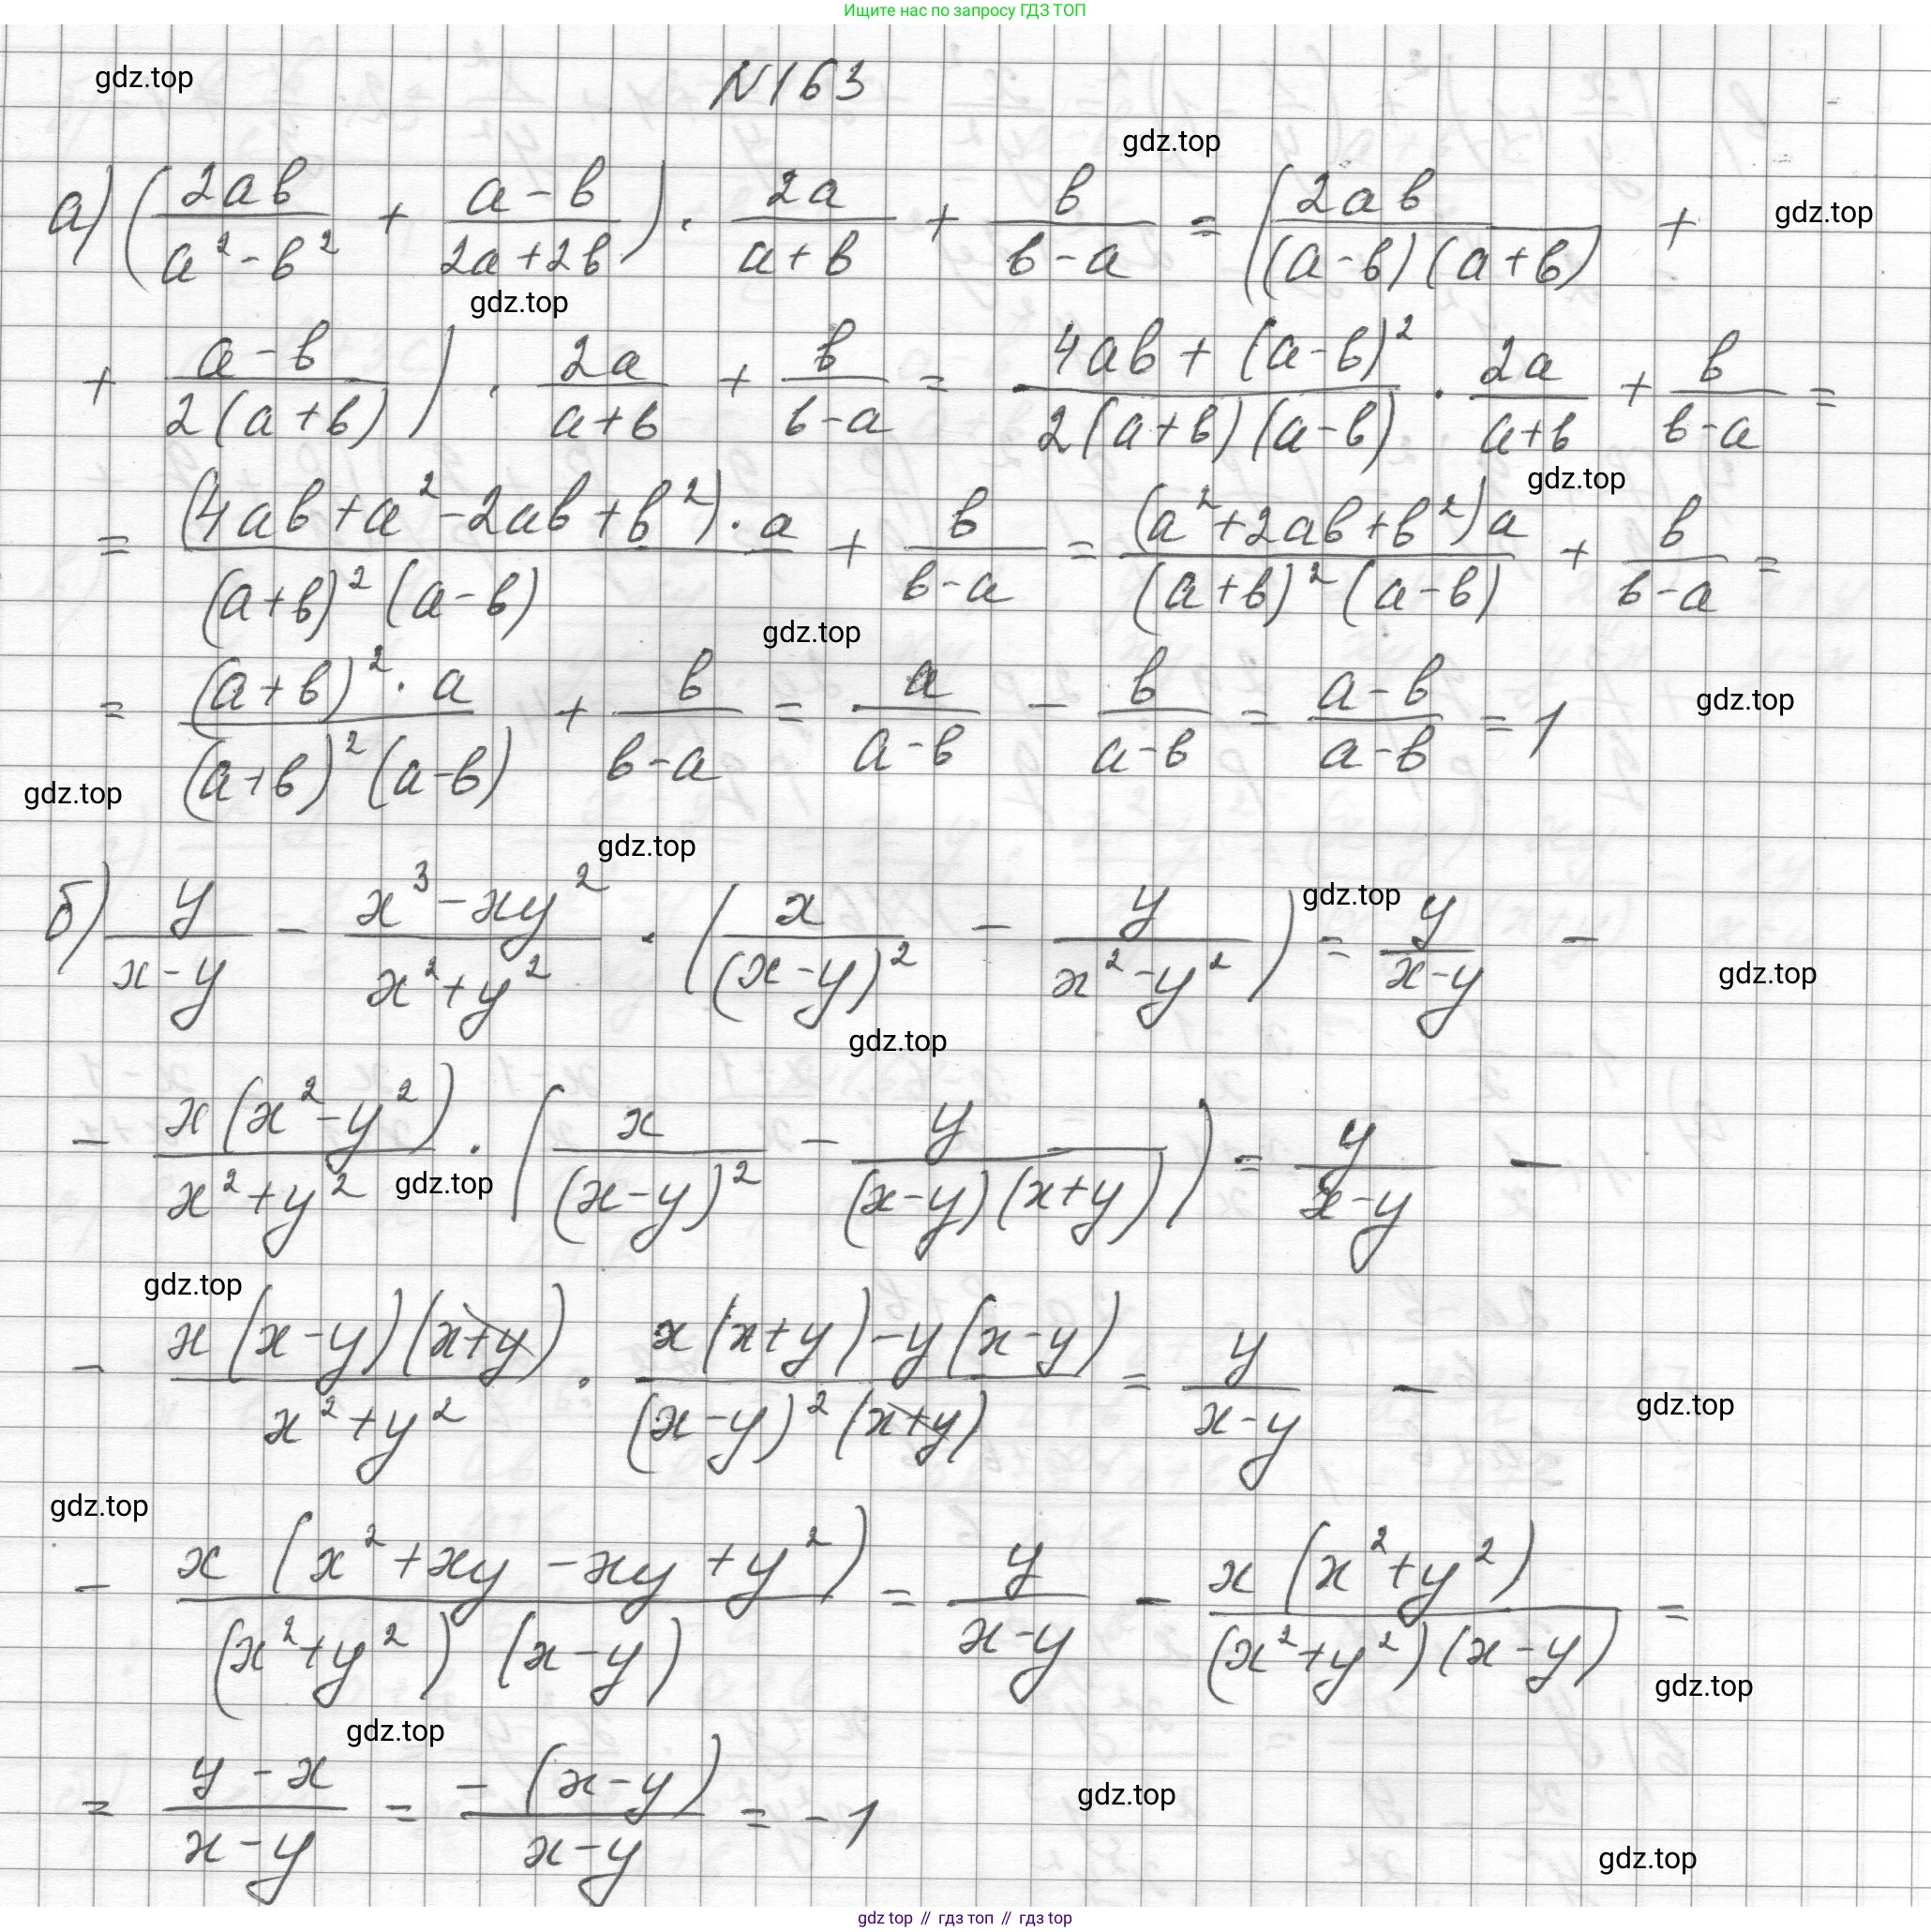 Ищите нас по запросу ГДЗ ТОП
gdz.top
N163
gdz.top
а) (2ab/(a²-b²) + (a-b)/(2a+2b)) · 2a/(a+b) + b/(b-a) = (2ab/((a-b)(a+b)) +
gdz.top
gdz.top
+ (a-b)/(2(a+b))) · 2a/(a+b) + b/(b-a) = (4ab+(a-b)²)/(2(a+b)(a-b)) · 2a/(a+b) + b/(b-a) =
gdz.top
= ((4ab+a²-2ab+b²)·a)/((a+b)²(a-b)) + b/(b-a) = ((a²+2ab+b²)a)/((a+b)²(a-b)) + b/(b-a) =
gdz.top
= ((a+b)²·a)/((a+b)²(a-b)) + b/(b-a) = a/(a-b) - b/(a-b) = (a-b)/(a-b) = 1
gdz.top
gdz.top
gdz.top
б) y/(x-y) - (x³-xy²)/(x²+y²) · (x/(x-y)² - y/(x²-y²)) = y/(x-y) -
gdz.top
gdz.top
gdz.top
- (x(x²-y²))/(x²+y²) · (x/(x-y)² - y/((x-y)(x+y))) = y/(x-y) -
gdz.top
gdz.top
- (x(x-y)(x+y))/(x²+y²) · (x(x+y)-y(x-y))/((x-y)²(x+y)) = y/(x-y) -
gdz.top
gdz.top
- (x(x²+xy-xy+y²))/((x²+y²)(x-y)) = y/(x-y) - (x(x²+y²))/((x²+y²)(x-y)) =
gdz.top
gdz.top
= (y-x)/(x-y) = (-(x-y))/(x-y) = -1
gdz.top
gdz.top
gdz top // гдз топ // gdz top